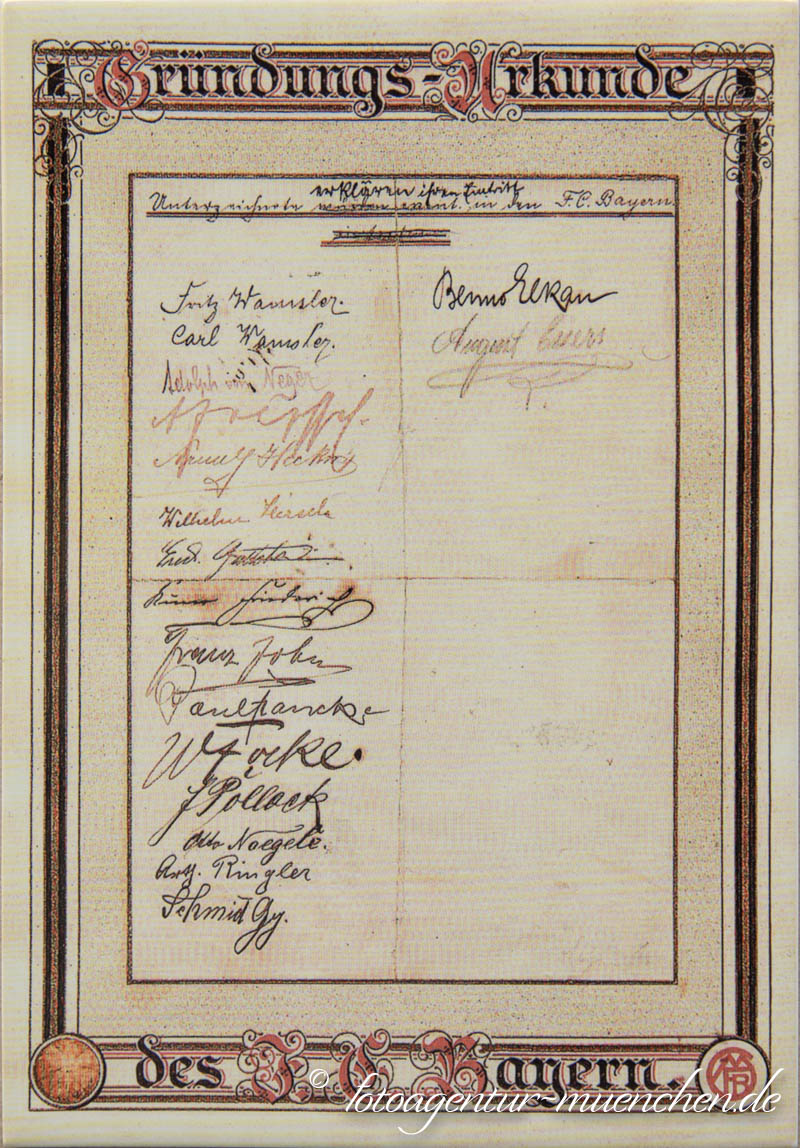 Gründungs-Urkunde
erklären ihren Eintritt
Unterzeichnete in den F.C. Bayern.
Fritz Wamsler.
Carl Wamsler.
Adolph Neger
Wilhelm Hirsch
Friederich
Franz John
Paul Francke
W Focke.
J Pollack
Otto Naegele.
Arth. Ringler
Schmid Gg.
Benno Elkan
August
des F. C. Bayern.
MFB
© fotoagentur-muenchen.de